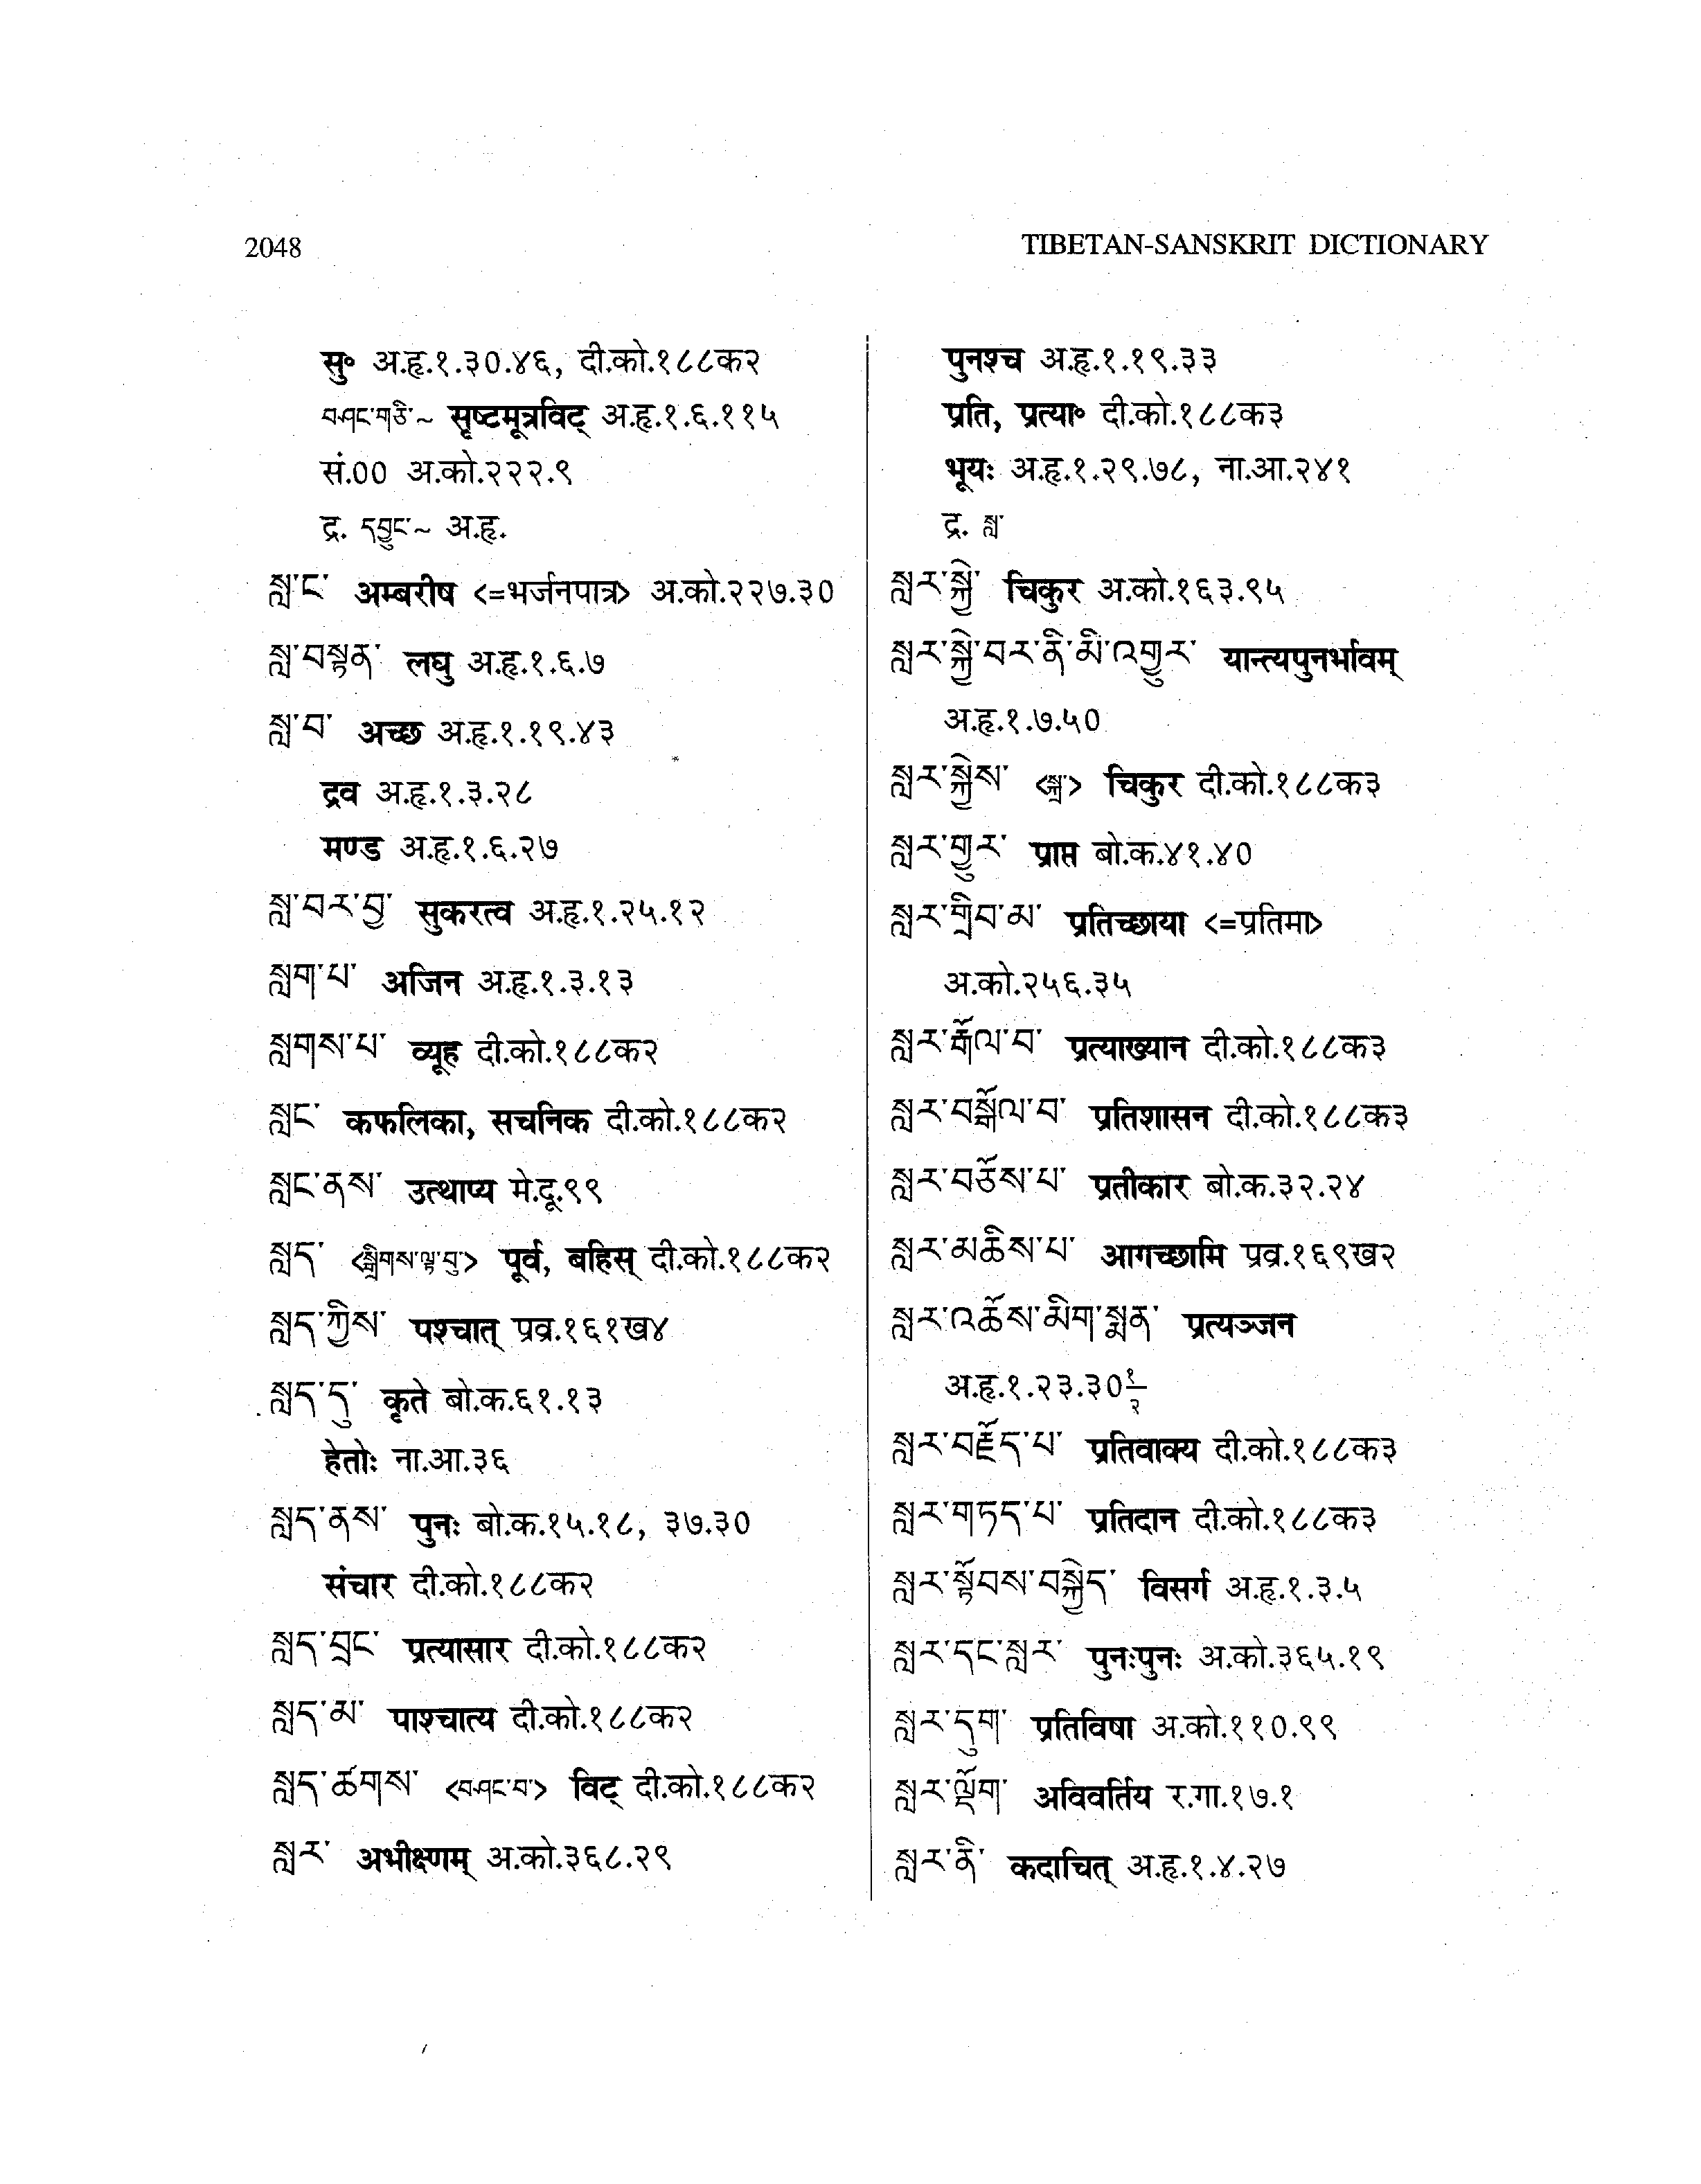 2048
TIBETAN-SANSKRIT DICTIONARY
सु॰ अ.हृ.१.३०.४६, दी.को.१८८क२
བཤང་གཅི་~ सृष्टमूत्रविट् अ.हृ.१.६.११५
सं.00 अ.को.२२२.९
द्र. དབྱུང་~ अ.हृ.
སླ་ང་ अम्बरीष <=भर्जनपात्र> अ.को.२२७.३०
སླ་བསྟན་ लघु अ.हृ.१.६.७
སླ་བ་ अच्छ अ.हृ.१.१९.४३
द्रव अ.हृ.१.३.२८
मण्ड अ.हृ.१.६.२७
སླ་བར་བྱ་ सुकरत्व अ.हृ.१.२५.१२
སླག་པ་ अजिन अ.हृ.१.३.१३
སླགས་པ་ व्यूह दी.को.१८८क२
སླང་ कफलिका, सचनिक दी.को.१८८क२
སླང་ནས་ उत्थाप्य मे.दू.९९
སླད་ <སྒྲིགས་ལྟ་བུ་> पूर्व, बहिस् दी.को.१८८क२
སླད་ཀྱིས་ पश्चात् प्रव्र.१६१ख४
སླད་དུ་ कृते बो.क.६१.१३
हेतोः ना.आ.३६
སླད་ནས་ पुनः बो.क.१५.१८, ३७.३०
संचार दी.को.१८८क२
སླད་བྲང་ प्रत्यासार दी.को.१८८क२
སླད་མ་ पाश्चात्य दी.को.१८८क२
སླད་ཚགས་ <བཤང་བ་> विट् दी.को.१८८क२
སླར་ अभीक्ष्णम् अ.को.३६८.२९
पुनश्च अ.हृ.१.१९.३३
प्रति, प्रत्या॰ दी.को.१८८क३
भूयः अ.हृ.१.२९.७८, ना.आ.२४१
द्र. སླ་
སླར་སྐྱེ་ चिकुर अ.को.१६३.९५
སླར་སྐྱེ་བར་ནི་མི་འགྱུར་ यान्त्यपुनर्भावम्
अ.हृ.१.७.५०
སླར་སྐྱེས་ <སྐྲ་> चिकुर दी.को.१८८क३
སླར་གྱུར་ प्राप्त बो.क.४१.४०
སླར་གྲིབ་མ་ प्रतिच्छाया <=प्रतिमा>
अ.को.२५६.३५
སླར་རྒོལ་བ་ प्रत्याख्यान दी.को.१८८क३
སླར་བསྒོལ་བ་ प्रतिशासन दी.को.१८८क३
སླར་བཅོས་པ་ प्रतीकार बो.क.३२.२४
སླར་མཆིས་པ་ आगच्छामि प्रव्र.१६९ख२
སླར་འཆོས་མིག་སྨན་ प्रत्यञ्जन
अ.हृ.१.२३.३०१/२
སླར་བརྗོད་པ་ प्रतिवाक्य दी.को.१८८क३
སླར་གཏད་པ་ प्रतिदान दी.को.१८८क३
སླར་སྟོབས་བསྐྱེད་ विसर्ग अ.हृ.१.३.५
སླར་དང་སླར་ पुनःपुनः अ.को.३६५.१९
སླར་དུག་ प्रतिविषा अ.को.११०.९९
སླར་ལྡོག་ अविवर्तिय र.गा.१७.१
སླར་ནི་ कदाचित् अ.हृ.१.४.२७